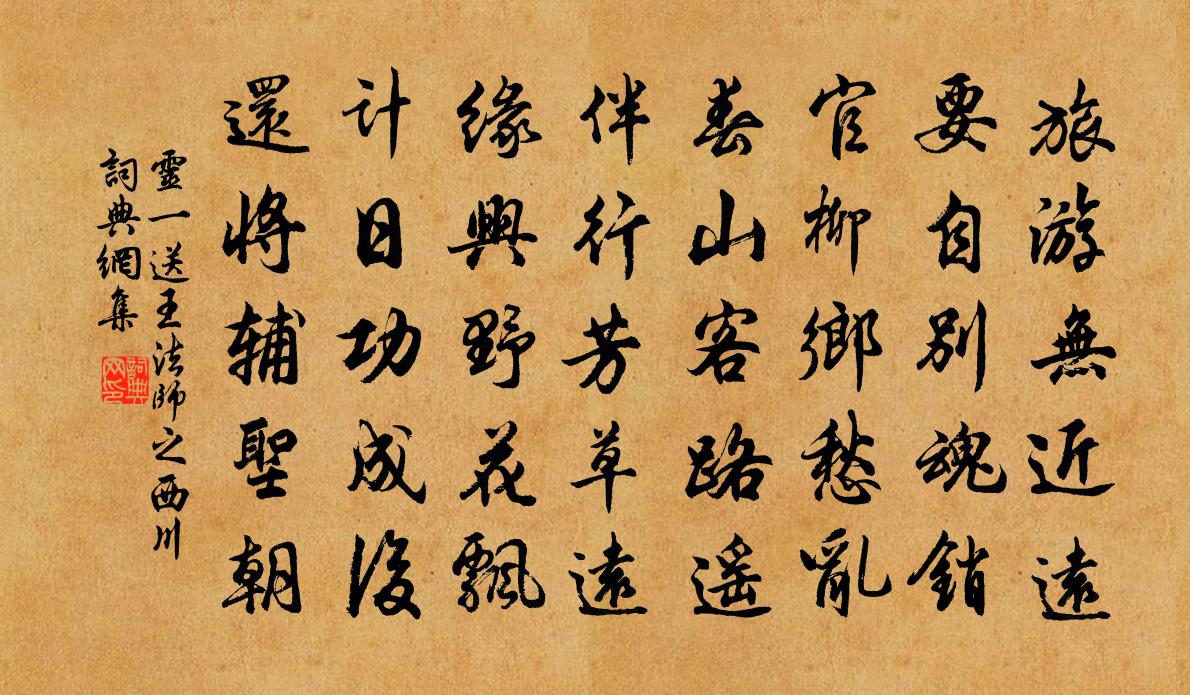 旅游無近遠
要自別魂銷
官柳鄉愁亂
春山客路遥
伴行芳草遠
緣興野花飄
計日功成後
還將辅聖朝
靈一送王法師之西川
詞典網集
詞典网印